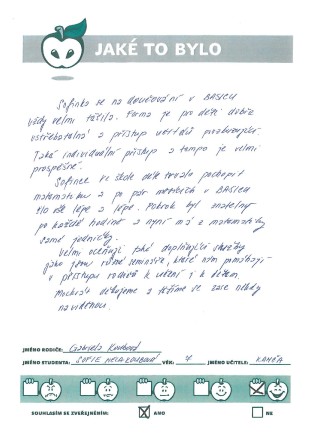 JAKÉ TO BYLO
Sofinka se na doučování v BASICU
vždy velmi těšila. Forma je pro děti dobře
vstřebatelná a přístup lektorů
Také individuální přístup a tempo je velmi
prospěšné.
Sofince ve škole déle trvalo pochopit
matematiku a po pár měsících v BASICU
šlo vše lépe a lépe. Pokrok byl znatelný
po každé hodině a nyní má z matematiky
samé jedničky.
Velmi oceňuji také doplňující služby
jako jsou různé semináře, které nám pomáhají
v přístupu rodičů k učení i k dětem.
Mockrát děkujeme a těšíme se zase někdy
na viděnou.
JMÉNO RODIČE: Gabriela
JMÉNO STUDENTA: SOFIE VĚK: 7 JMÉNO UČITELE: KAMČA
SOUHLASÍM SE ZVEŘEJNĚNÍM: ANO NE